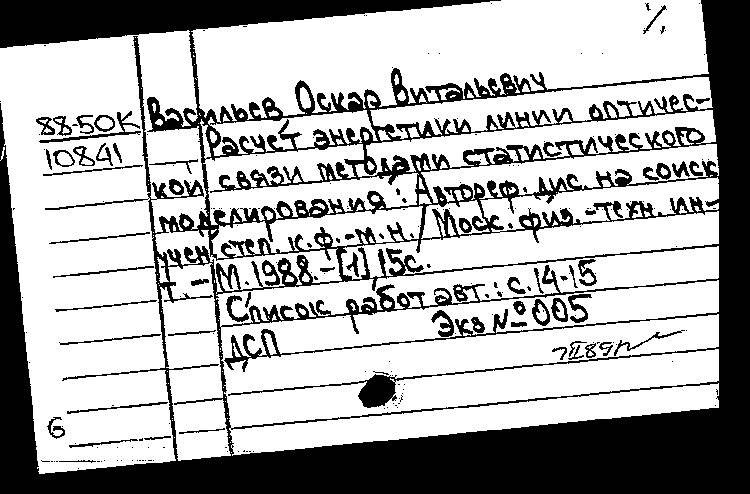 88-50К Васильев Оскар Витальевич
10841 Расчёт энергетики линии оптичес-
кой связи методами статистического
моделирования: Автореф. дис. на соиск
учен. степ. к.ф.-м.н. / Моск. физ.-техн. ин-
т. - М. 1988. - [1], 15с.
Список работ авт.: с.14-15
ДСП Экз № 005
6